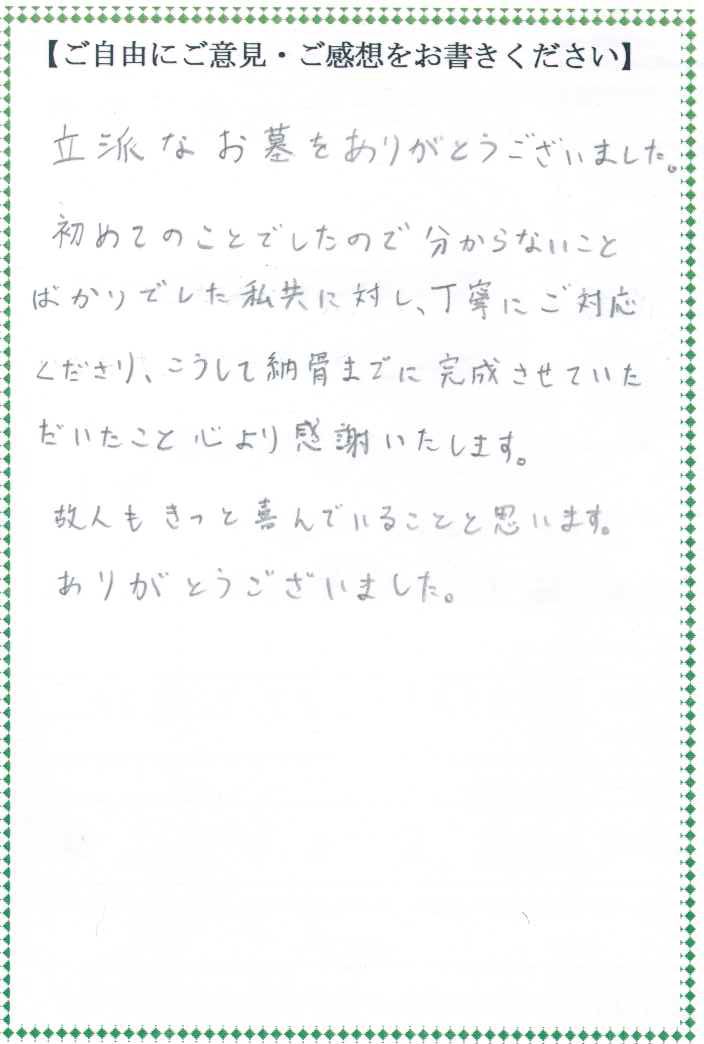 【ご自由にご意見・ご感想をお書きください】
立派なお墓をありがとうございました。
初めてのことでしたので分からないこと
ばかりでした私共に対し、丁寧にご対応
くださり、こうして納骨までに完成させていた
だいたこと心より感謝いたします。
故人もきっと喜んでいることと思います。
ありがとうございました。